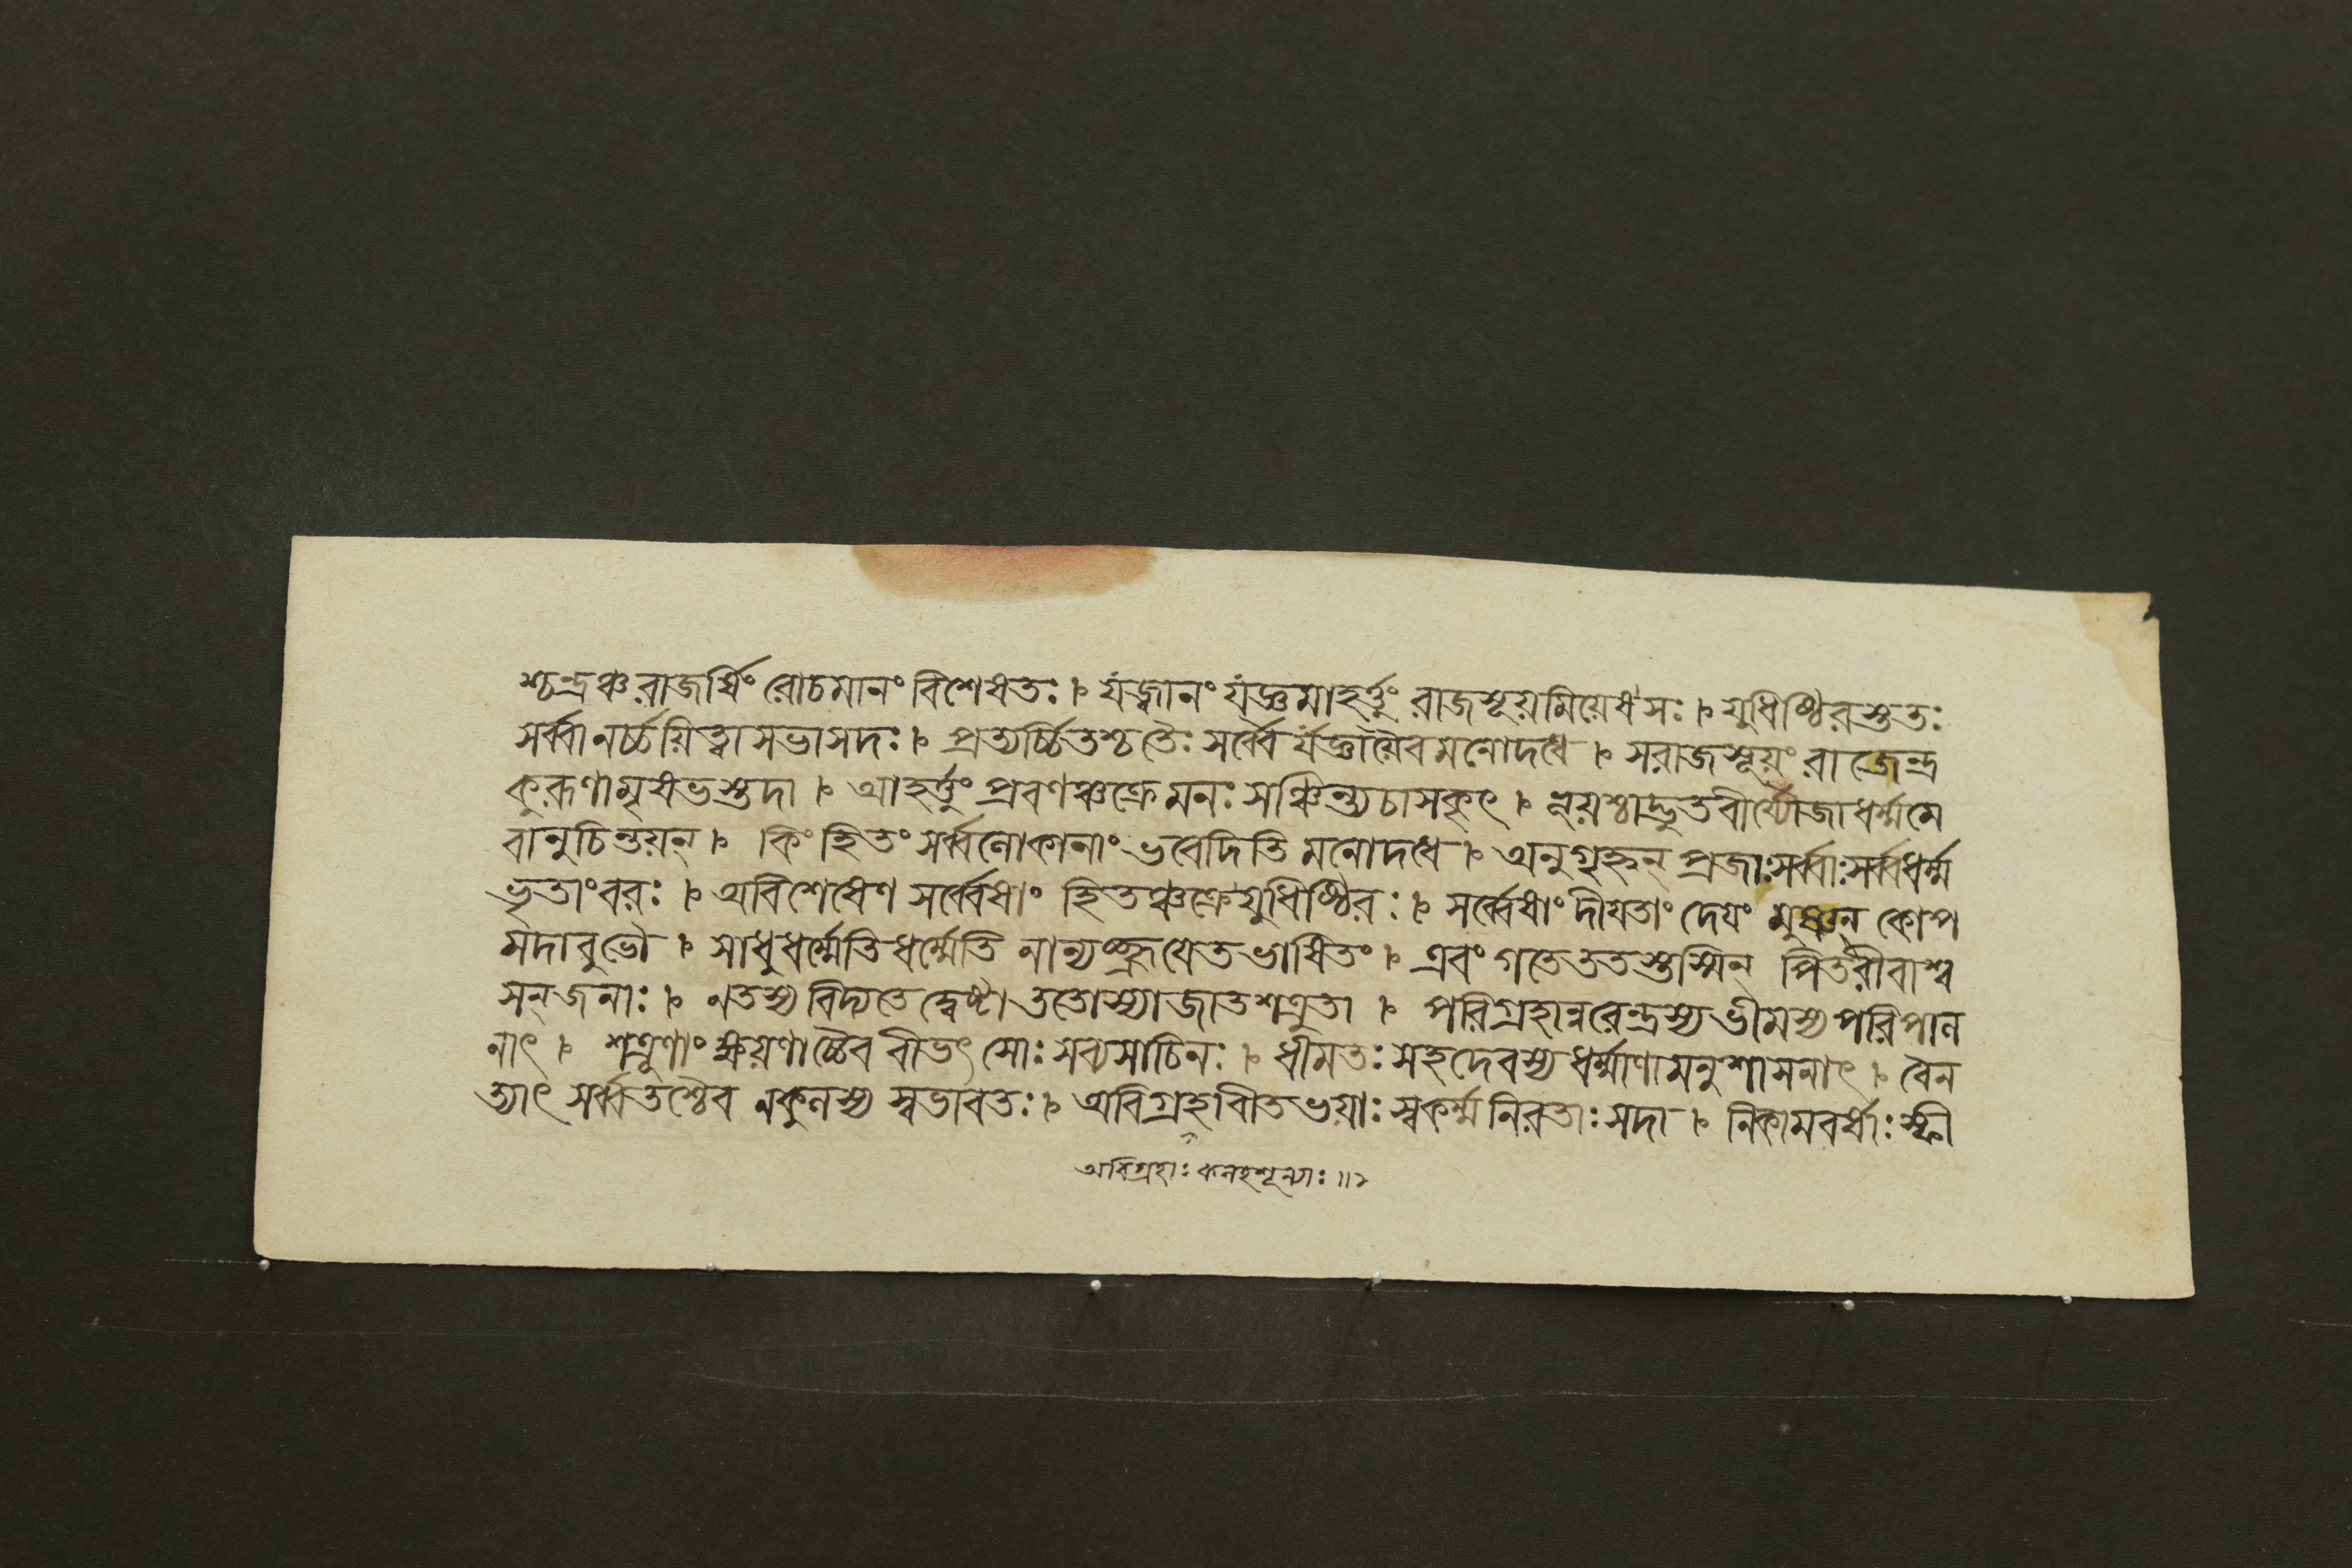 শ্চন্দ্রঞ্চ রাজর্ষিং রোচমানং বিশেষতঃ । যজ্বানং যজ্ঞমাহর্ত্তুং রাজসূয়মিয়েষ সঃ । যুধিষ্ঠিরস্তুতঃ
সর্ব্বানর্চ্চয়িত্বা সভাসদঃ । প্রত্যর্চ্চিতশ্চ তৈঃ সর্ব্বৈর্যজ্ঞায়ৈব মনোদধে । স রাজসূয়ং রাজেন্দ্র
কুরূণামৃষভস্তদা । আহর্ত্তুং প্রবণঞ্চক্রে মনঃ সঞ্চিন্ত্য চাসকৃৎ । ভূয়শ্চাদ্ভুতবীর্য্যৌজা ধর্ম্মমে
বানুচিন্তয়ন্ । কিং হিতং সর্ব্বলোকানাং ভবেদিতি মনোদধে । অনুগৃহ্নন্ প্রজাঃ সর্ব্বাঃ সর্ব্বধর্ম্ম
ভৃতাংবরঃ । অবিশেষেণ সর্ব্বেষাং হিতঞ্চক্রে যুধিষ্ঠিরঃ । সর্ব্বেষাং দীয়তাং দেয়ং মুষ্ণন্ কোপ
মদাবুভৌ । সাধুধর্ম্মেতি ধর্ম্মেতি নান্যচ্ছ্রূয়েত ভাষিতং । এবংগতে ততস্তস্মিন্ পিতরীবাশ্ব
সন্ জনাঃ । ন তস্য বিদ্যতে দ্বেষ্টা ততোস্যাজাতশত্রুতা । পরিগ্রহান্নরেন্দ্রস্য ভীমস্য পরিপাল
নাৎ । শত্রূণাং ক্ষয়ণাচ্চৈব বীভৎসোঃ সব্যসাচিনঃ । ধীমতঃ সহদেবস্য ধর্ম্মাণামনুশাসনাৎ । বৈন
ত্যাৎ সর্ব্বতশ্চৈব নকুলস্য স্বভাবতঃ । অবিগ্রহবীতভয়াঃ স্বকর্ম্মনিরতাঃ সদা । নিকামবর্ষাঃ স্ফী
অবিগ্রহাঃ কলহশূন্যাঃ ॥২